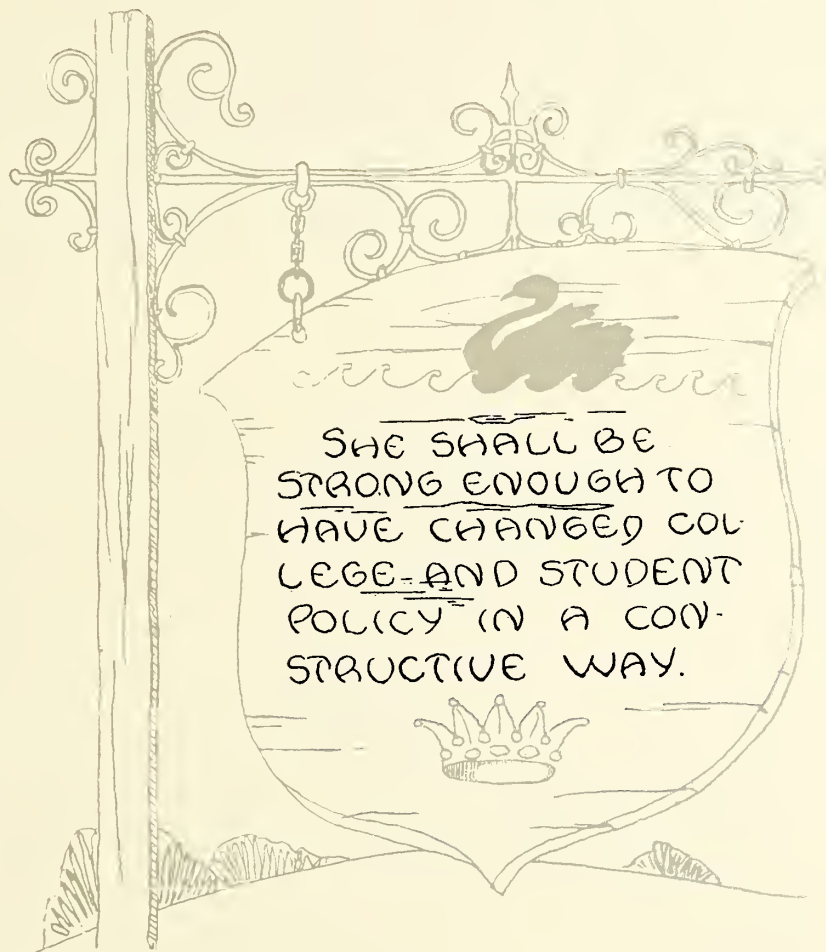 SHE SHALL BE
STRONG ENOUGH TO
HAVE CHANGED COL-
LEGE AND STUDENT
POLICY IN A CON-
STRUCTIVE WAY.